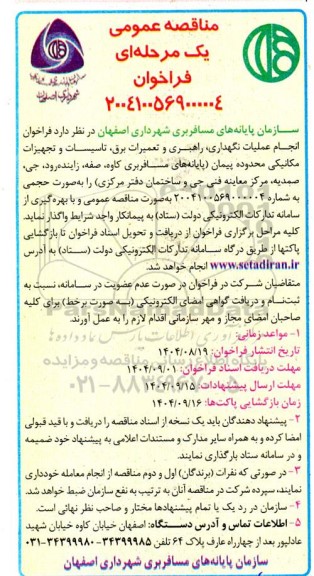 مناقصه عمومی
یک مرحله‌ای
فراخوان
۲۰۰۴۱۰۰۵۶۹۰۰۰۰۰۴
سازمان پایانه‌های مسافربری شهرداری اصفهان در نظر دارد فراخوان
انجام عملیات نگهداری، راهبری و تعمیرات برق، تاسیسات و تجهیزات
مکانیکی محدوده پیمان (پایانه‌های مسافربری کاوه، صفه، زاینده‌رود، جی،
صمدیه، مرکز معاینه فنی جی و ساختمان دفتر مرکزی) را به‌صورت حجمی
به شماره ۲۰۰۴۱۰۰۵۶۹۰۰۰۰۰۴ به‌صورت مناقصه عمومی و با بهره‌گیری از
سامانه تدارکات الکترونیکی دولت (ستاد) به پیمانکار واجد شرایط واگذار نماید.
کلیه مراحل برگزاری فراخوان از دریافت و تحویل اسناد فراخوان تا بازگشایی
پاکتها از طریق درگاه سامانه تدارکات الکترونیکی دولت (ستاد) به آدرس
www.setadiran.ir انجام خواهد شد.
متقاضیان شرکت در فراخوان در صورت عدم عضویت در سامانه، نسبت به
ثبت‌نام و دریافت گواهی امضای الکترونیکی (به صورت برخط) برای کلیه
صاحبان امضای مجاز و مهر سازمانی اقدام لازم را به عمل آورند.
۱- مواعد زمانی:
تاریخ انتشار فراخوان: ۱۴۰۴/۰۸/۱۹
مهلت دریافت اسناد فراخوان: ۱۴۰۴/۰۹/۰۱
مهلت ارسال پیشنهادات: ۱۴۰۴/۰۹/۱۵
زمان بازگشایی پاکت‌ها: ۱۴۰۴/۰۹/۱۶
۲- پیشنهاد دهندگان باید یک نسخه از اسناد مناقصه را دریافت و با قید قبولی
امضا کرده و به همراه سایر مدارک و مستندات اعلامی به پیشنهاد خود ضمیمه
و در سامانه ستاد بارگذاری نمایند.
۳- در صورتی که نفرات (برندگان) اول و دوم مناقصه از انجام معامله خودداری
نمایند، سپرده شرکت در مناقصه آنان به ترتیب به نفع سازمان ضبط خواهد شد.
۴- سازمان در رد یک یا تمام پیشنهادها مختار و صاحب نظر نهائی است.
۵- اطلاعات تماس و آدرس دستگاه: اصفهان خیابان کاوه خیابان شهید
عادلپور بعد از چهارراه عارف پلاک ۶۴ تلفن ۳۴۳۹۹۹۸۵-۳۴۳۹۹۹۸۰-۰۳۱
سازمان پایانه‌های مسافربری شهرداری اصفهان